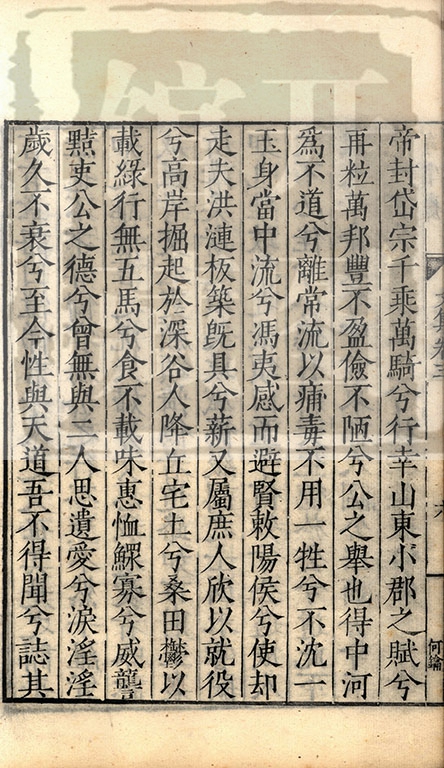 帝封岱宗千乘萬騎兮行幸山東小郡之賦兮
再粒萬邦豐不盈儉不陋兮公之舉也得中河
爲不道兮離常流以痡毒不用一牲兮不沈一
玉身當中流兮馮夷感而避賢敕陽侯兮使却
走夫洪漣板築旣具兮薪又屬庶人欣以就役
兮高岸掘起於深谷人降丘宅土兮桑田鬱以
載綠行無五馬兮食不載味惠恤鰥寡兮威讋
黠吏公之德兮曾無與二人思遺愛兮淚淫淫
歲久不衰兮至今性與天道吾不得聞兮誌其
何鑰